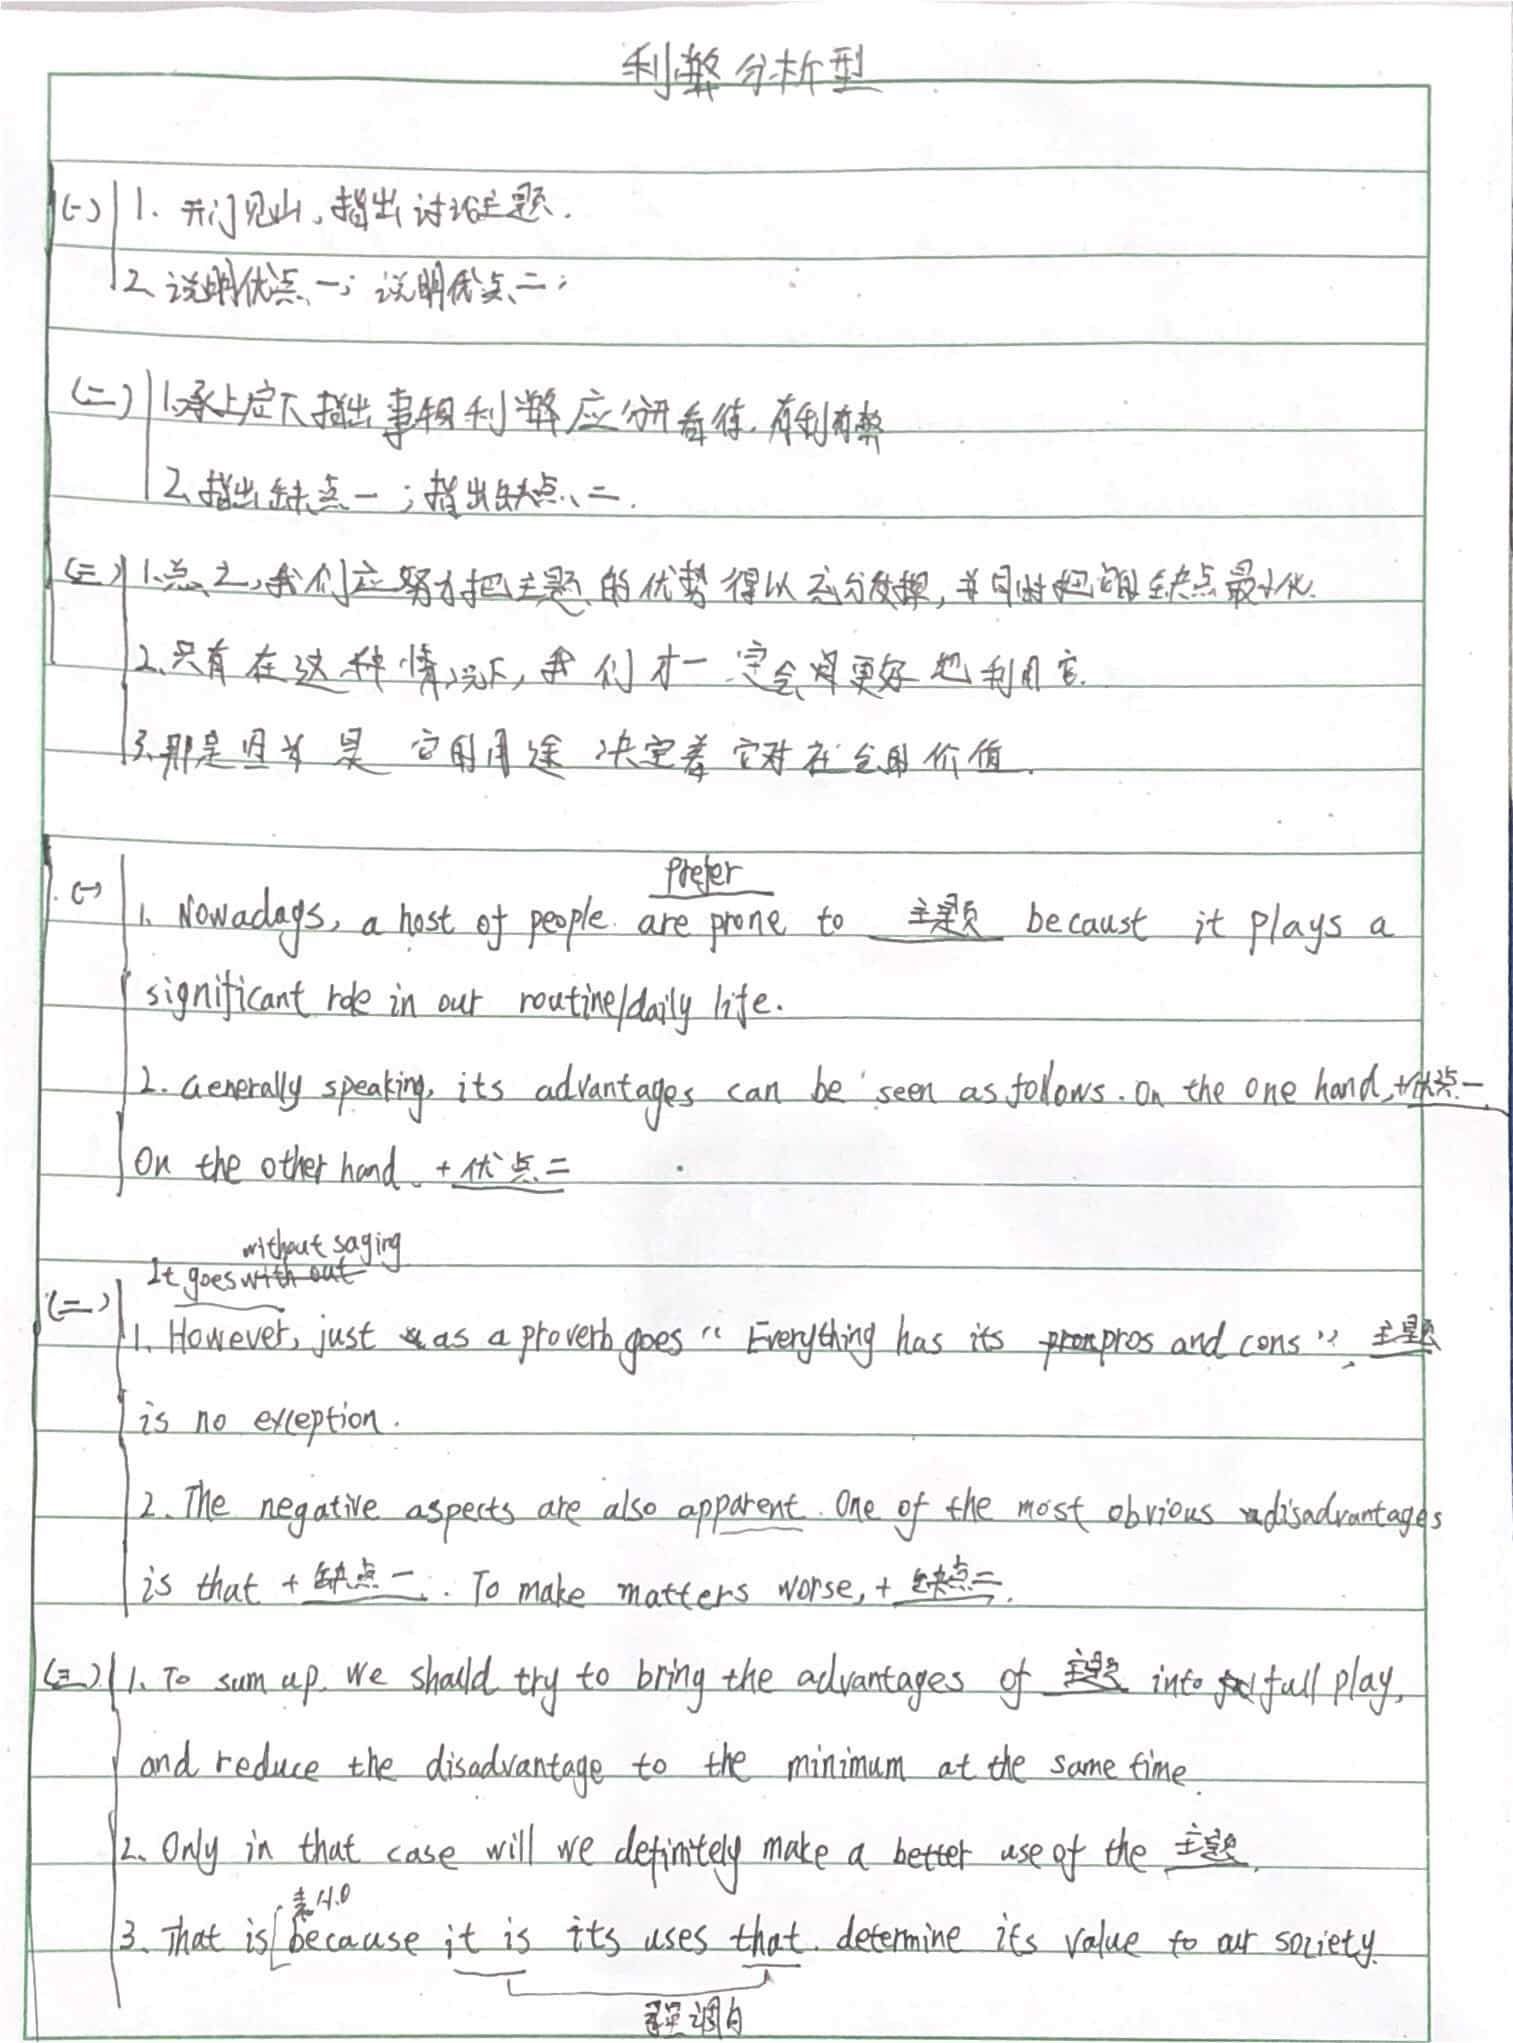 利弊分析型
(一) 1. 开门见山，指出讨论主题.
2. 说明优点一；说明优点二；
(二) 1.承上启下指出事物利弊应分开看待.有利有弊
2.指出缺点一；指出缺点二.
(三) 1.总之,我们应努力把主题的优势得以充分发挥,并同时把它的缺点最小化.
2.只有在这种情况下,我们才一定会更好地利用它.
3.那是因为是它的用途决定着它对社会的价值.
prefer
(一) 1. Nowadays, a host of people are prone to 主题 becaust it plays a
significant role in our routine/daily life.
2. Generally speaking, its advantages can be seen as follows. On the one hand, +优点一
On the other hand, +优点二
without saying
It goes with out
(二) 1. However, just as a proverb goes “ Everything has its pros and cons ”, 主题
is no exception.
2. The negative aspects are also apparent. One of the most obvious disadvantages
is that + 缺点一. To make matters worse, + 缺点二.
(三) 1. To sum up. We should try to bring the advantages of 主题 into full play,
and reduce the disadvantage to the minimum at the same time.
2. Only in that case will we definitely make a better use of the 主题.
表语从句
3. That is [because it is its uses that determine its value to our society.
强调句